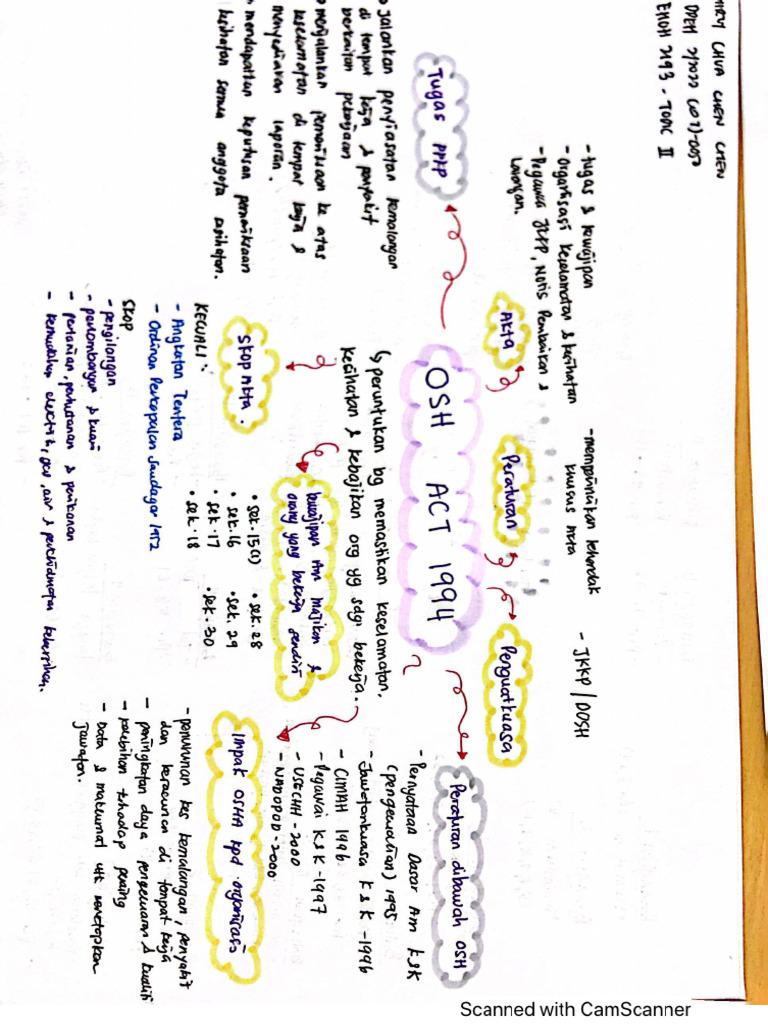 CHUA CHEN CHEN
DPEM 2/2022 (07)-0050
EMOH 2193 - TOPIC II
OSH ACT 1994
↳ peruntukan bg memastikan keselamatan,
kesihatan & kebajikan org yg sdg bekerja.
Akta
- tugas & kewajipan
- organisasi keselamatan & kesihatan
- Pegawai JKKP, Notis Pembaikan &
Larangan.
Peraturan
- memperincikan kehendak
khusus Akta
Penguatkuasa
- JKKP / DOSH
Tugas PPKP
jalankan penyiasatan kemalangan
di tempat kerja & penyakit
berkaitan pekerjaan
menjalankan pemeriksaan ke atas
keselamatan di tempat kerja &
menyediakan laporan.
mendapatkan keputusan pemeriksaan
kesihatan semua anggota
Skop Akta.
KECUALI:
- Angkatan Tentera
- Ordinan Perkapalan Saudagar 1952
SKOP
- pengilangan
- perlombongan & kuari
- pertanian, perhutanan & perikanan
- kemudahan elektrik, gas, air & perkhidmatan kebersihan.
kewajipan Am Majikan &
orang yang bekerja sendiri
• sek. 15(1)
• sek. 16
• sek. 17
• sek. 18
• sek. 28
• sek. 29
• sek. 30
Peraturan dibawah OSH
- Pernyataan Dasar Am K&K
(pengecualian) 1995
- Jawatankuasa K&K - 1996
- CIMAH 1996
- Pegawai K&K - 1997
- USECHH - 2000
- NADOPOD - 2000
Impak OSHA kpd organisasi
- penurunan kes kemalangan, penyakit
dan keracunan di tempat kerja
- peningkatan daya pengeluaran & kualiti
- terhadap
- Data & maklumat utk menetapkan
Scanned with CamScanner